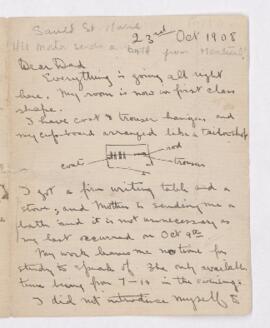 Sault St. Marie
His Mother sends a bath from Montreal
23rd Oct 1908
Dear Dad
Everything is going all right
here. My room is now in first class
shape.
I have coat & trouser hangers and
my cupboard arranged like a tailorshop
coats
rod
trousers
I got a fine writing table and a
stove, and Mother is sending me a
bath and it is not unnecessary as
my last occurred on Oct 9th
My work leaves me no time for
study to speak of the only available
time being from 7-10 in the evenings
I did not introduce myself to